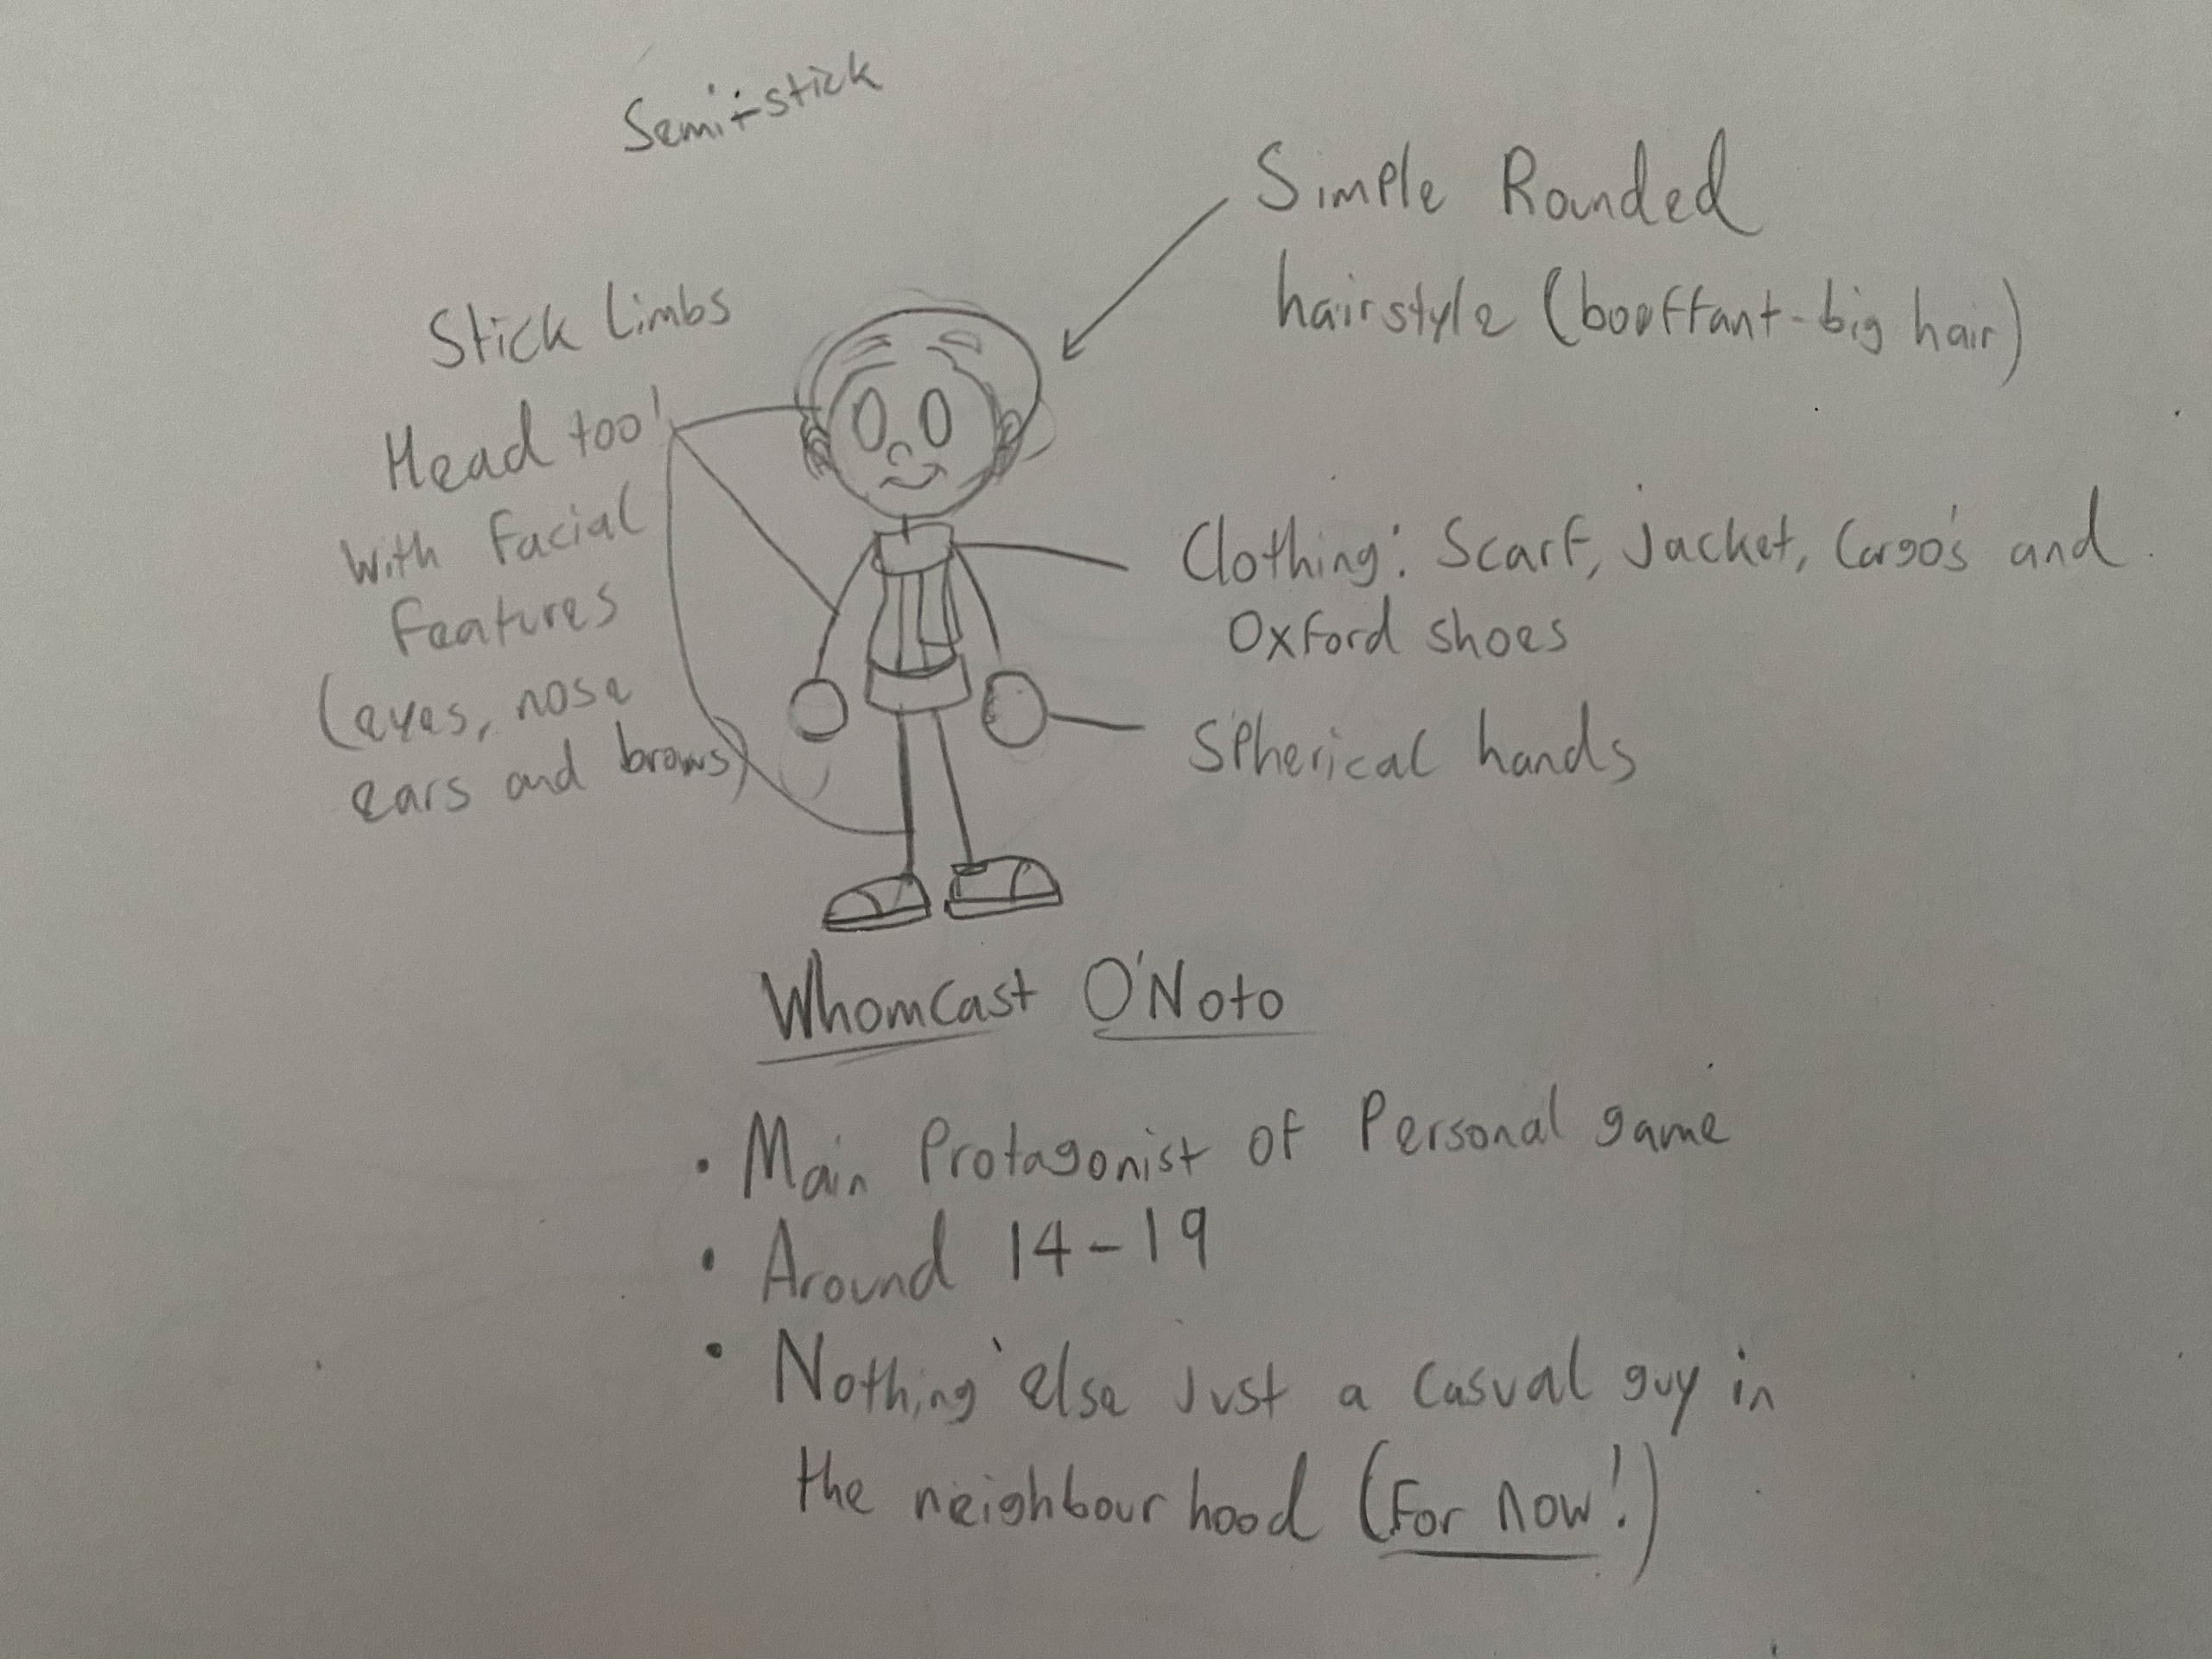 Semi-stick
Simple Rounded
hairstyle (bouffant-big hair)
Stick Limbs
Head too!
With facial
features
(eyes, nose
ears and brows)
Clothing: Scarf, Jacket, Cargo's and
Oxford shoes
Spherical hands
Whomcast O'Noto
• Main Protagonist of Personal game
• Around 14-19
• Nothing else just a casual guy in
the neighbourhood (For now!)